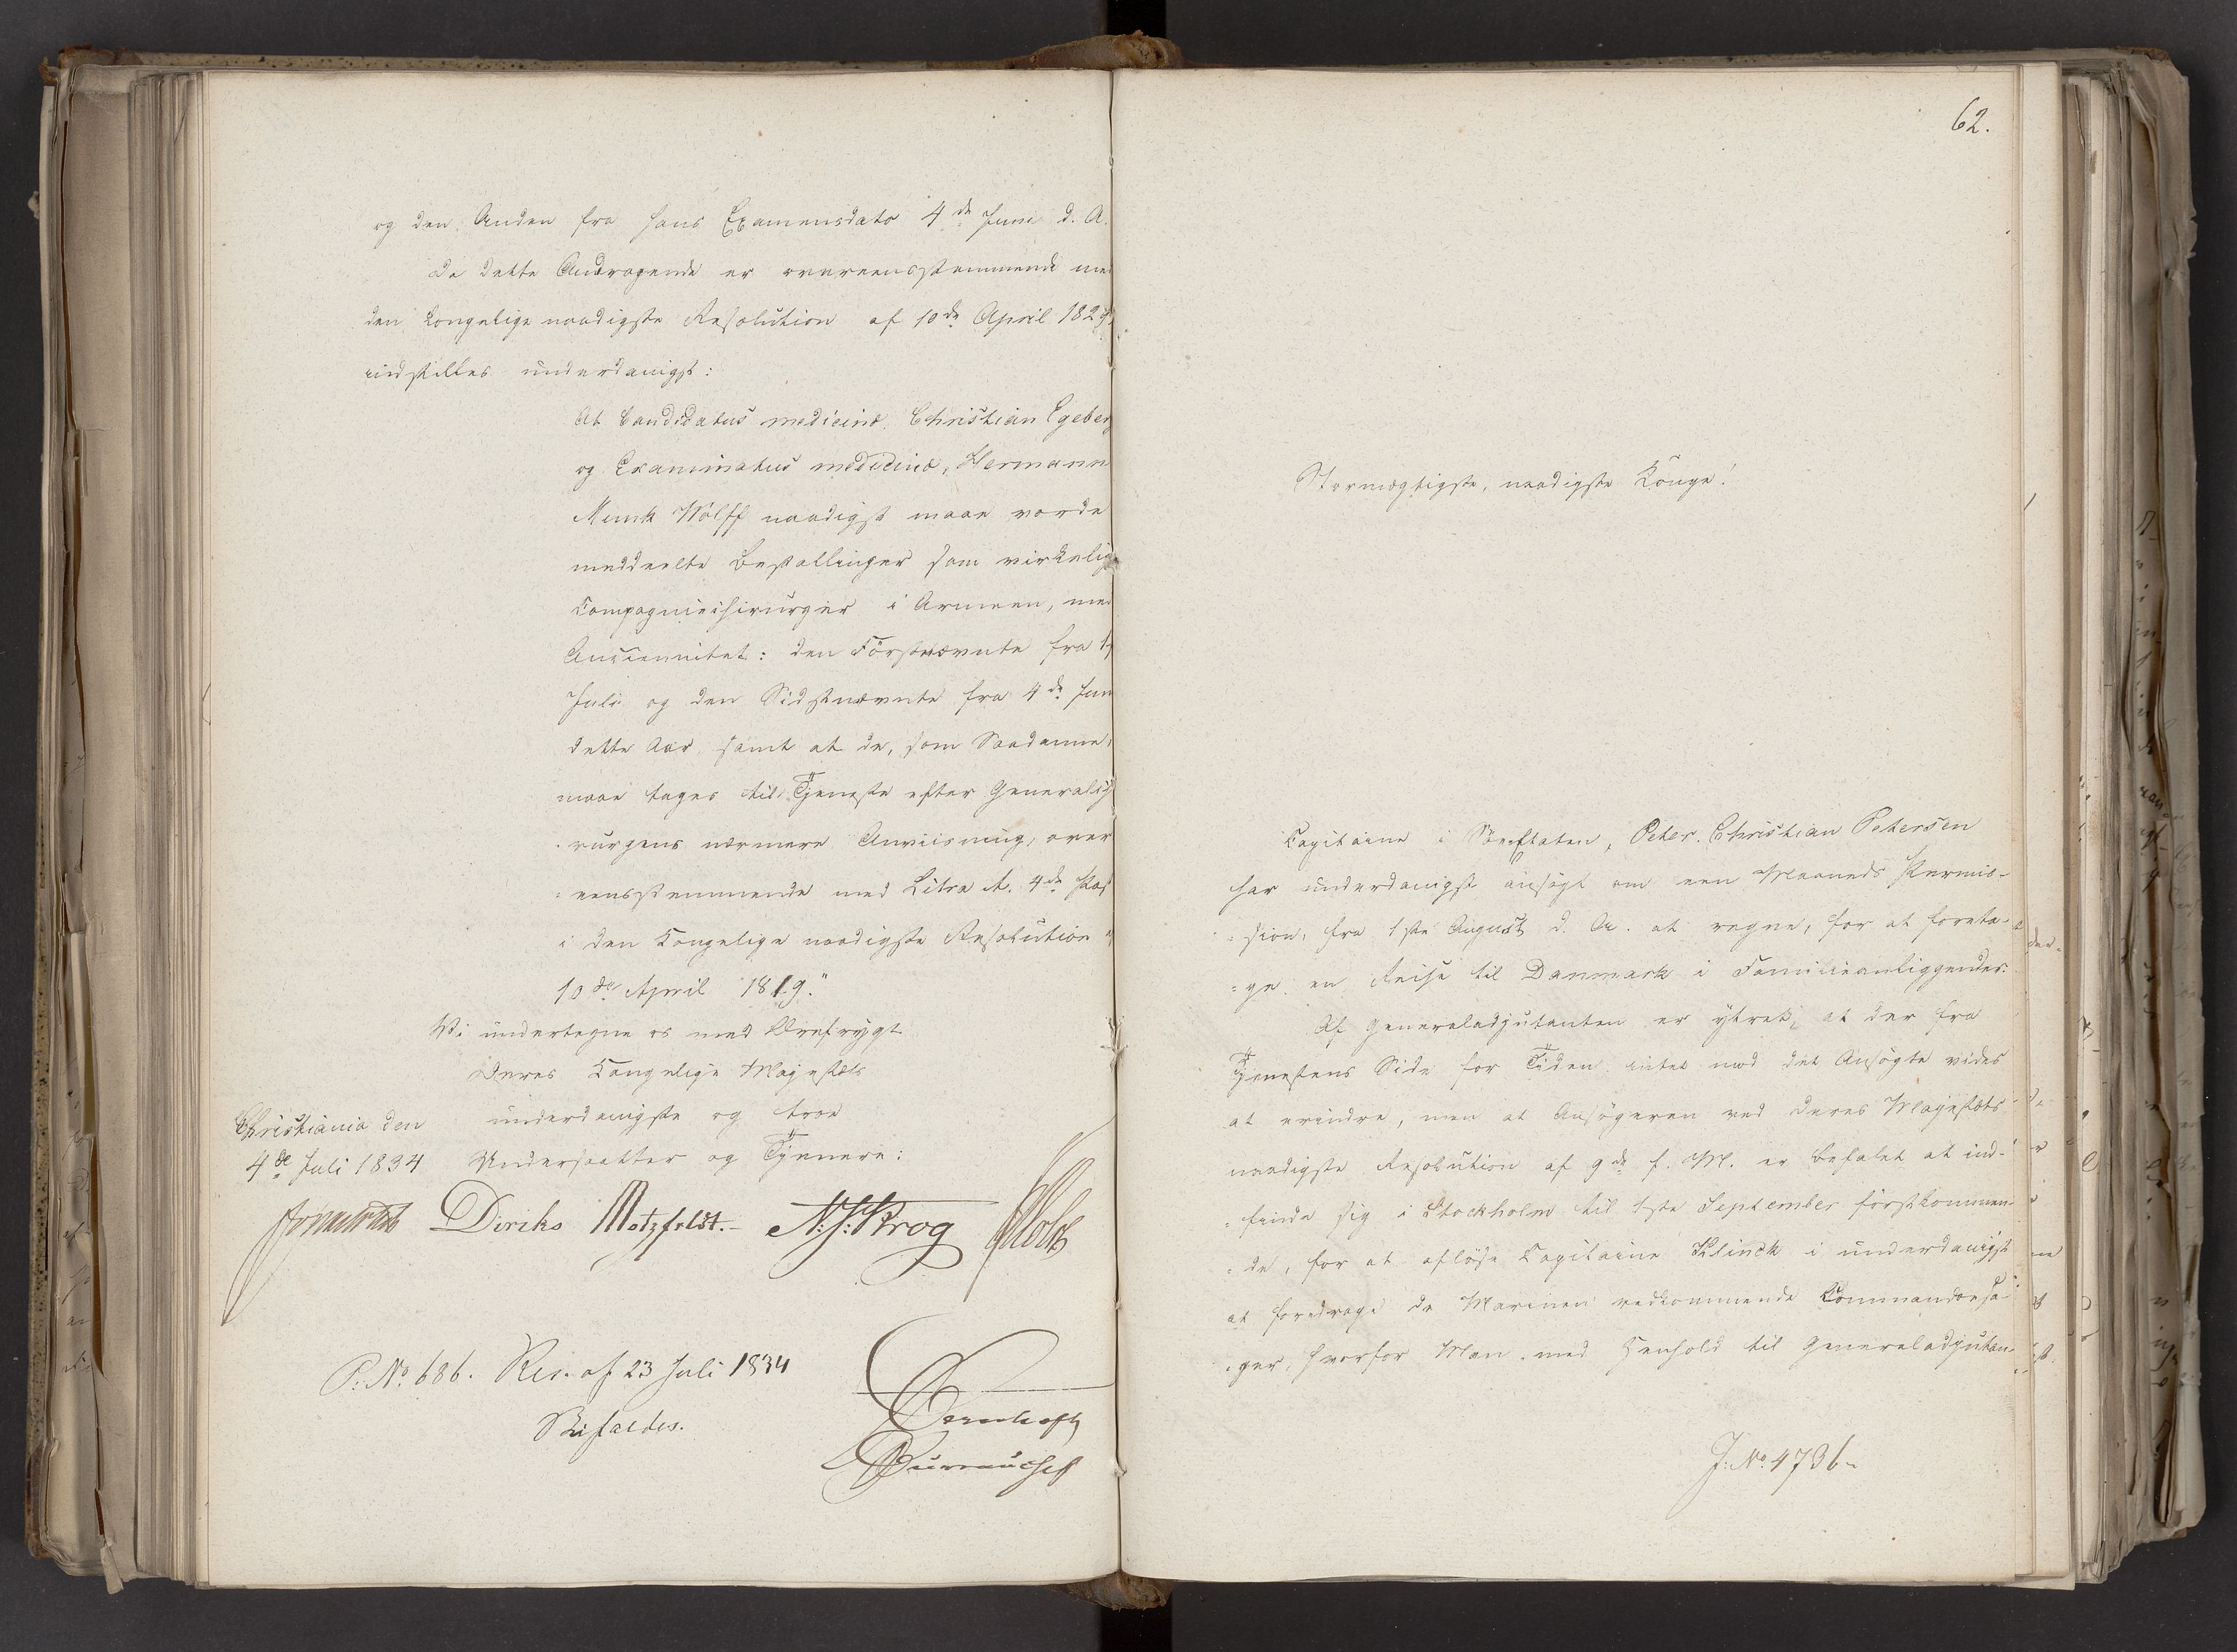 og den Anden fra hans Examensdato 4de Juni d. A.
Da dette Andragende er overeensstemmende med
den Kongelige naadigste Resolution af 10de April 1829,
indstilles underdanigst:
At Candidatus medicinæ Christian Egeberg
og Examinatus medicinæ, Hermann
Munk Wolff naadigst maae vorde
meddeelte Bestallinger som virkelige
Compagniechirurger i Armeen, med
Anciennitet: den Förstnævnte fra 1
Juli og den Sidstnævnte fra 4de Jun
dette Aar samt at de, som Saadanne,
maae tages til Tjeneste efter Generalchi
rurgens nærmere Anviisning, over
=eensstemmende med Litra A. 4de Post
i den Kongelige naadigste Resolution af
10de April 1819."
Vi undertegne os med Ærefrygt
Deres Kongelige Majestæts
Christiania den underdanigste og troe
4de Juli 1834 Undersaatter og Tjenere:
Diriks Motzfeldt.- N:J:Krog Holst
P: No 686. Res. af 23 Juli 1834
Bifaldes.
Bureauchef
62.
Stormægtigste, naadigste Konge!
Capitaine i Söeetaten, Peter Christian Petersen
har underdanigst ansögt om een Maaneds Permis-
=sion, fra 1ste August d. A. at regne, for at foreta-
=ge en Reise til Danmark i Familieanliggender.
Af Generaladjutanten er yttret, at der fra
Tjenestens Side for Tiden intet mod det Ansögte vides
at erindre, men at Ansögeren ved Deres Majestæts
naadigste Resolution af 9de f. M. er befalet at ind-
=finde sig i Stockholm til 1ste September förstkommen-
=de, for at aflöse Capitaine Klinck i underdanigst
at foredrage de Marinen vedkommende Commandosa-
=ger, hvorfor Man med Henhold til Generaladjutan-
J: No. 4736.